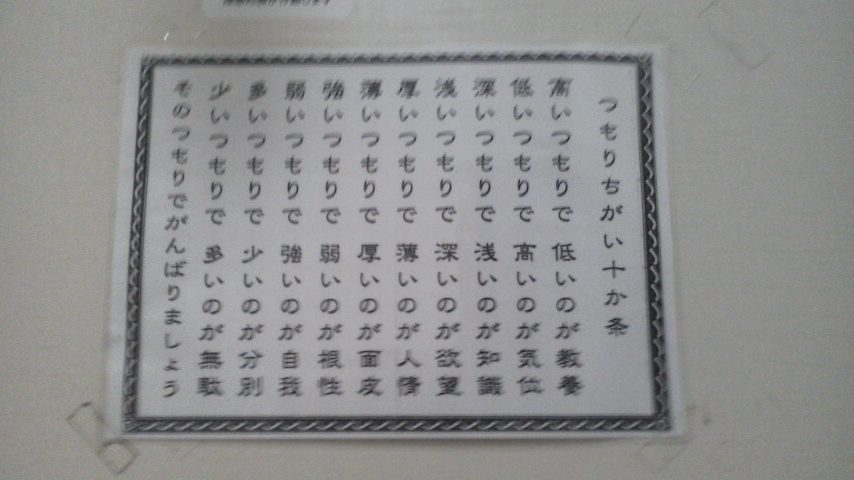 つもりちがい十か条
高いつもりで 低いのが教養
低いつもりで 高いのが気位
深いつもりで 浅いのが知識
浅いつもりで 深いのが欲望
厚いつもりで 薄いのが人情
薄いつもりで 厚いのが面皮
強いつもりで 弱いのが根性
弱いつもりで 強いのが自我
多いつもりで 少いのが分別
少いつもりで 多いのが無駄
そのつもりでがんばりましょう